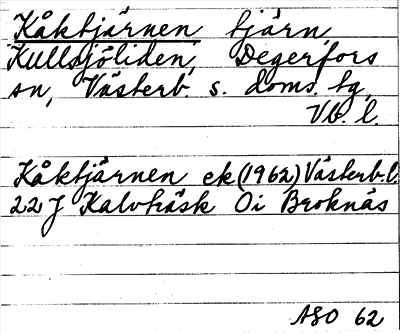 Kåktjärnen tjärn
Kullsjöliden, Degerfors
sn, Västerb. s. doms. tg,
Vb. l.
Kåktjärnen ek (1962) Västerb. l.
22 J Kalvträsk Oi Broknäs
ASO 62